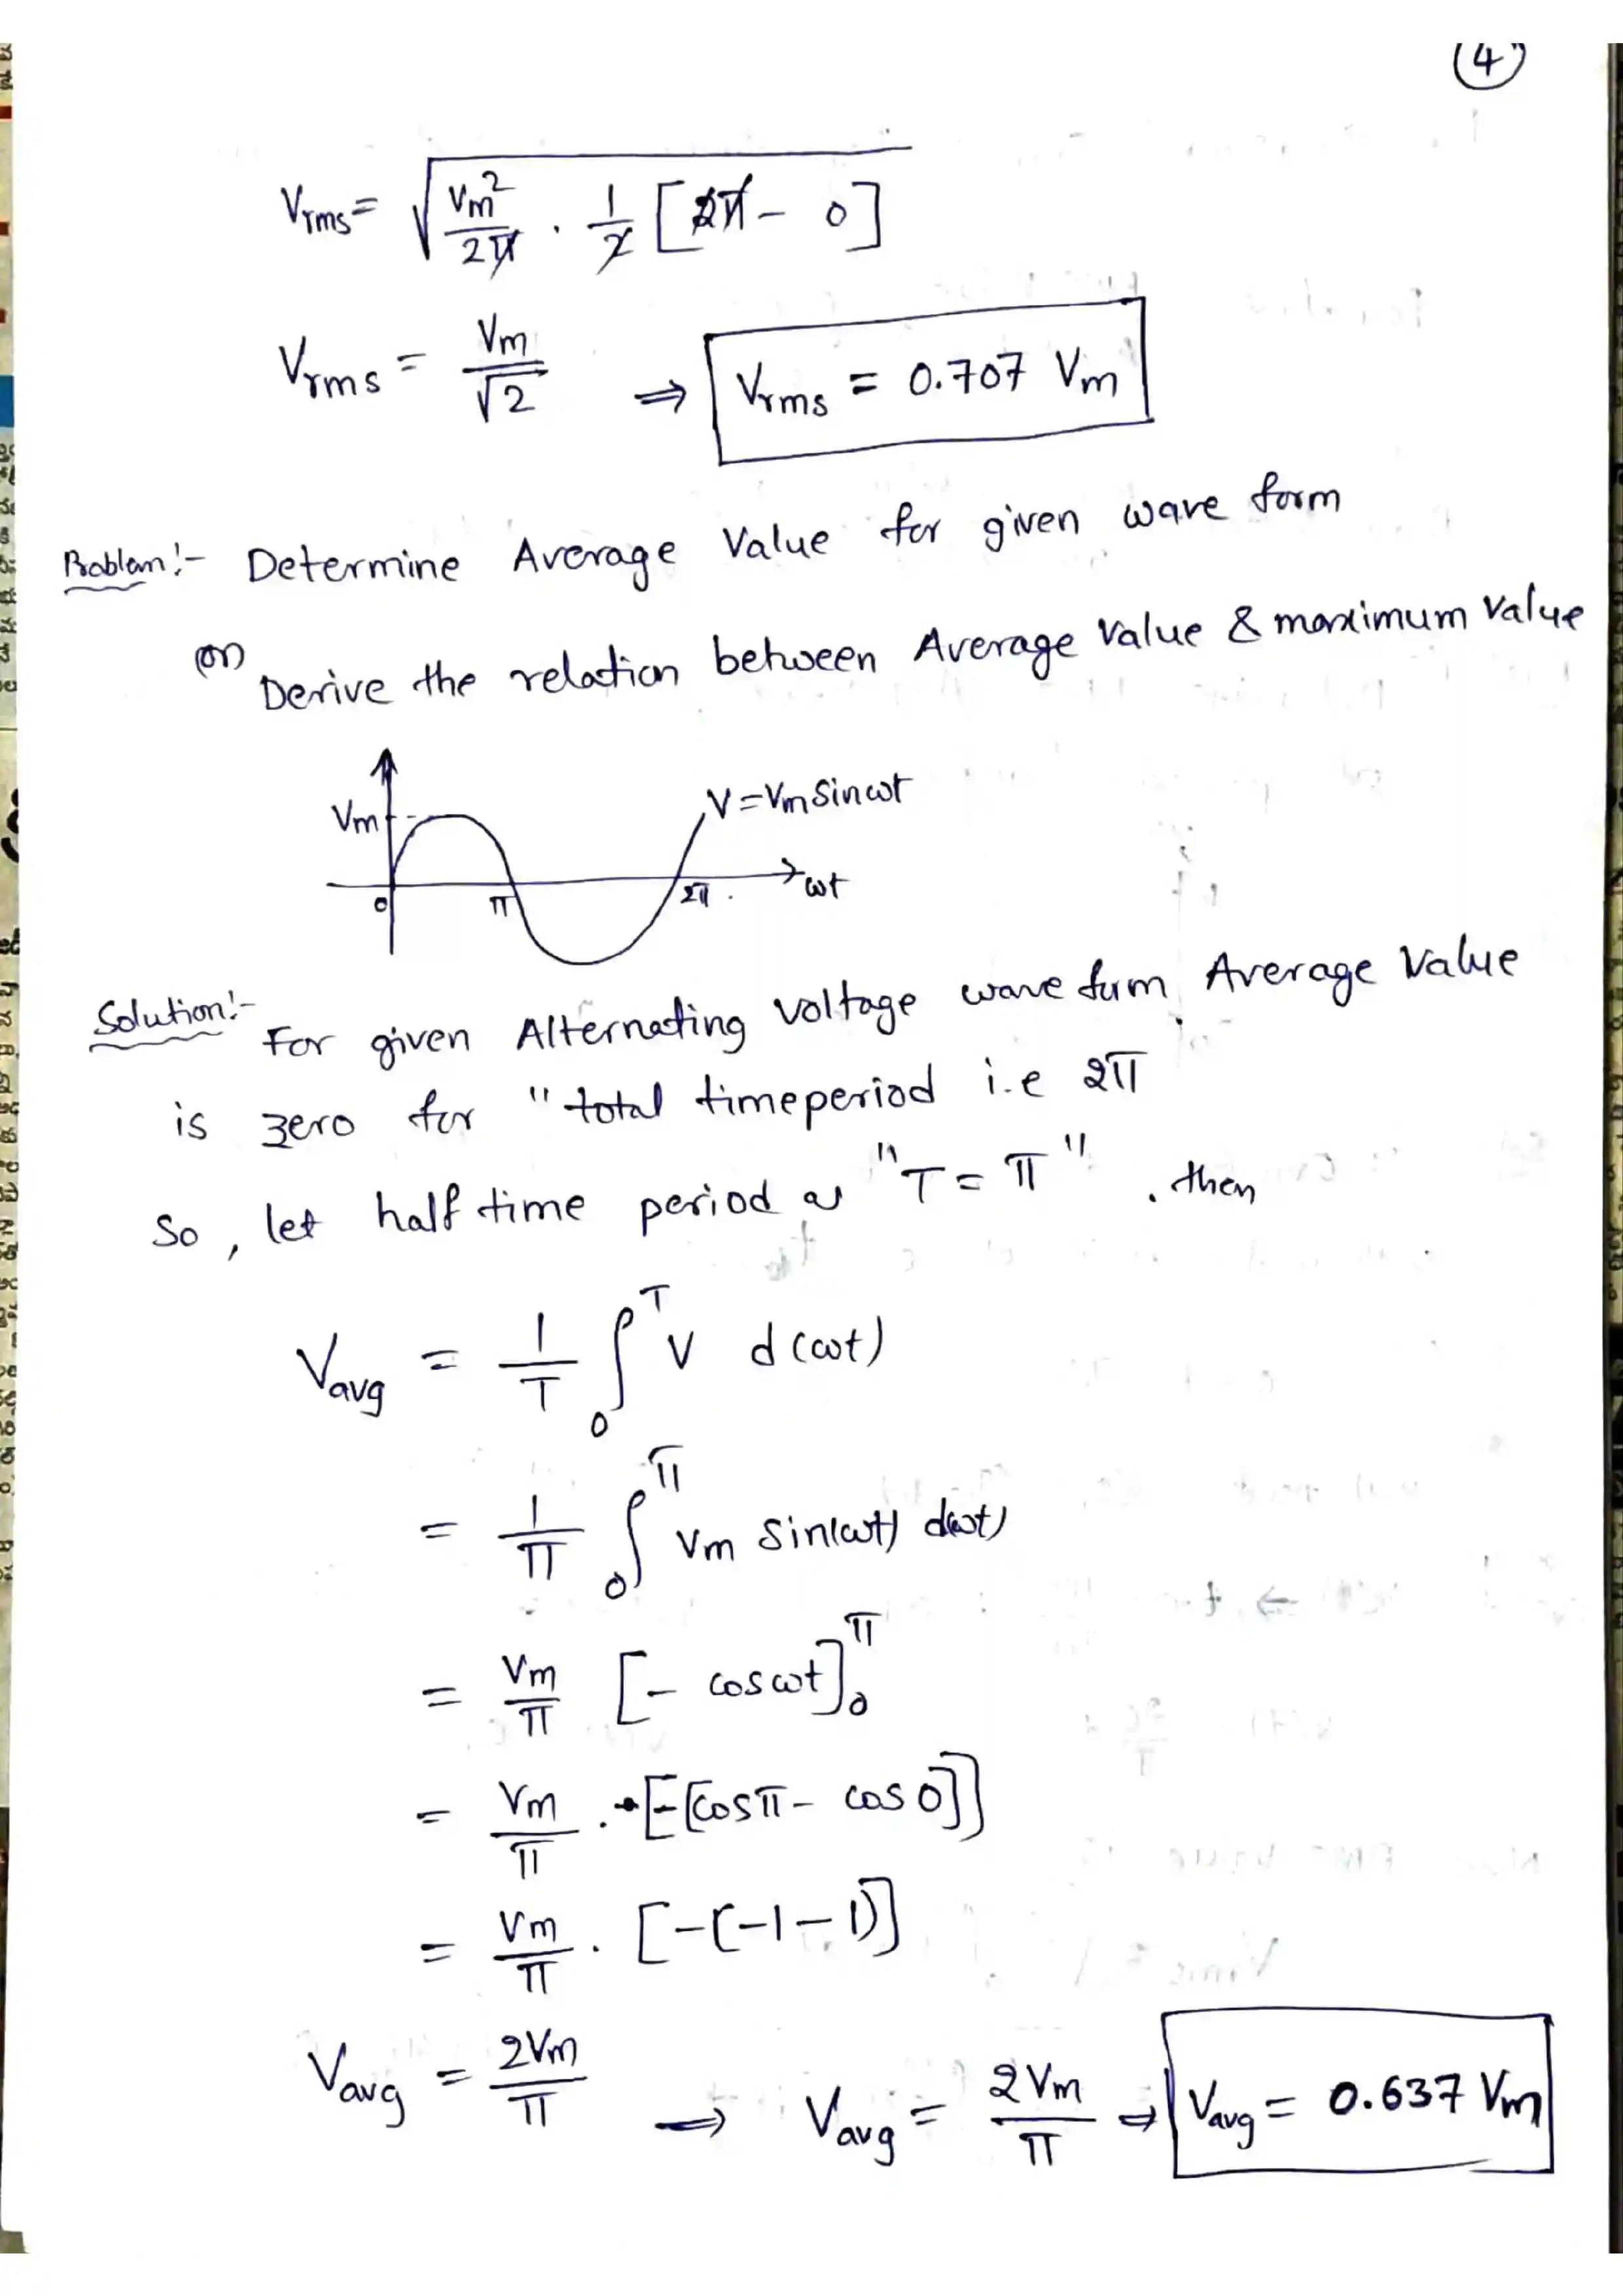 (4)
Vrms = √(Vm²/2π · 1/2 [2π - 0])
Vrms = Vm/√2 ⇒ Vrms = 0.707 Vm
Problem:- Determine Average Value for given wave form
(or)
Derive the relation between Average Value & maximum Value
Vm
V=Vm Sin ωt
0 π 2π . ωt
Solution:- For given Alternating Voltage wave form, Average Value
is zero for "total timeperiod i.e 2π
So, let half time period as "T = π". then
Vavg = 1/T ∫₀ᵀ V d(ωt)
= 1/π ∫₀^π Vm Sin(ωt) d(ωt)
= Vm/π [- cos ωt]₀^π
= Vm/π . [-[cos π - cos 0]]
= Vm/π . [-(-1-1)]
Vavg = 2Vm/π → Vavg = 2Vm/π ⇒ Vavg = 0.637 Vm